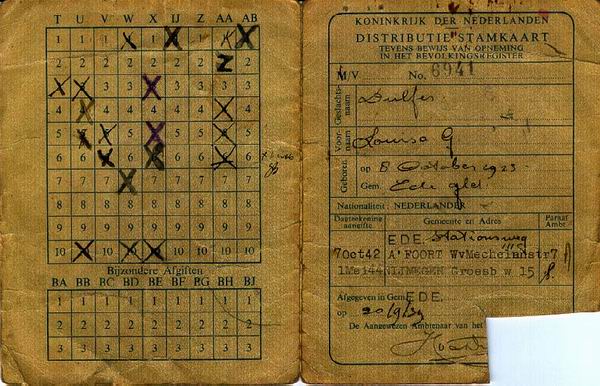 T U V W X IJ Z AA AB
1 1 1 1 1 1 1 1 1
2 2 2 2 2 2 2 2 2
3 3 3 3 3 3 3 3 3
4 4 4 4 4 4 4 4 4
5 5 5 5 5 5 5 5 5
6 6 6 6 6 6 6 6 6
7 7 7 7 7 7 7 7 7
8 8 8 8 8 8 8 8 8
9 9 9 9 9 9 9 9 9
10 10 10 10 10 10 10 10 10
Bijzondere Afgiften
BA BB BC BD BE BF BG BH BJ
1 1 1 1 1 1 1 1 1
2 2 2 2 2 2 2 2 2
3 3 3 3 3 3 3 3 3
KONINKRIJK DER NEDERLANDEN
DISTRIBUTIE STAMKAART
TEVENS BEWIJS VAN OPNEMING
IN HET BEVOLKINGSREGISTER
M/V No. 6941
Geslachtsnaam Dulfer
Voornaam Louisa G
Geboren op 8 October 1923
Gem. Ede gld.
Nationaliteit: NEDERLANDER
Dagteekening aangifte Gemeente en Adres Paraaf Ambt.
EDE. Stationsweg
7Oct42 A'FOORT WvMechelnstr7
1Mei44 NIJMEGEN Groesb w 15
Afgegeven in Gem. EDE.
op 20/9/39
De Aangewezen Ambtenaar van het